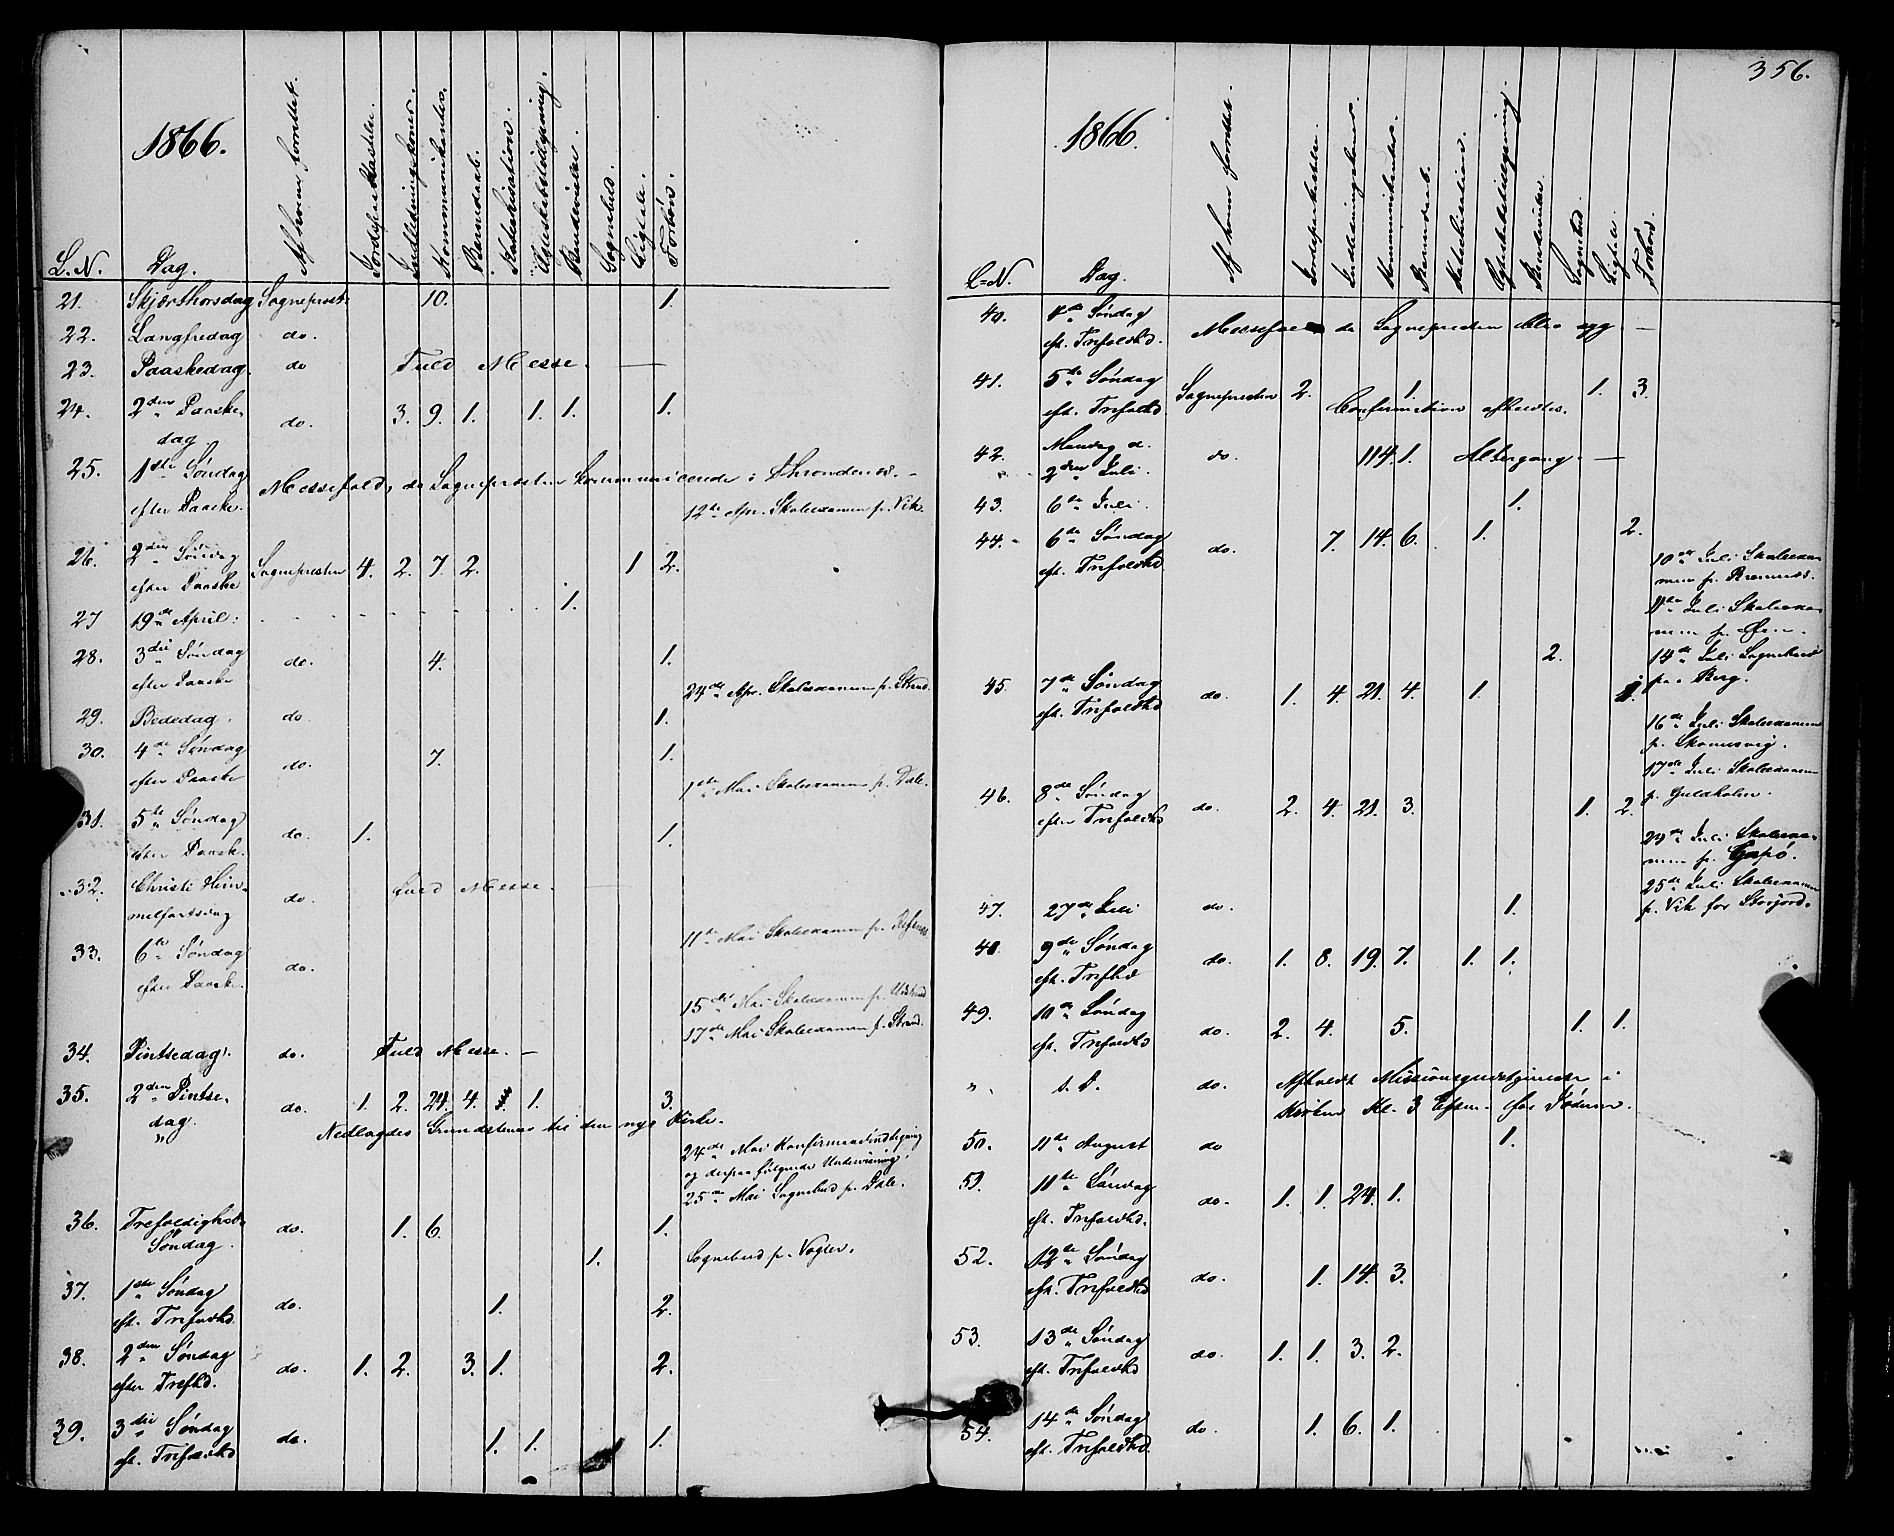 1866.
L.N. Dag. Af hvem forrettet. Jordspaakastelse. Indledningskoner. Kommunikantes. Barnedaab. Katekisation. Ægteskabstillysning. Brudevielse. Sognebud. Ligtale. Forhør.
21. Skjærthorsdag Sognepræst 10. 1.
22. Langfredag do.
23. Paaskedag. do Fuld Messe. —
24. 2den Paaske-
dag. do. 3. 9. 1. 1. 1. 1.
25. 1ste Søndag
efter Paaske. Messefald, da Sognepræsten kommunicerede i Throndenæs. –
12te Apr. Skoleexamen p. Vik.
26. 2den Søndag
efter Paaske Sognepresten 4. 2. 7. 2. 1 2.
27 19de April: 1.
28. 3die Søndag
efter Paaske do. 4. 1.
24de Apr. Skoleexamen p. Strand.
29. Bededag. do. 1.
30. 4de Søndag
efter Paaske do. 7. 1.
1ste Mai Skoleexamen p. Dale.
31. 5te Søndag
efter Paaske. do. 1. 1.
32. Christi Him-
melfartsdag do. Fuld Messe. —
11te Mai Skoleexamen p.
33. 6te Søndag
efter Paaske. do.
15de Mai Skoleexamen p.
17de Mai Skoleexamen p. Strand.
34. Pintsedag. do. Fuld Messe. —
35. 2den Pintse-
dag. do. 1. 2. 24. 4. 1. 3.
" Nedlagdes Grundstenen til den nye Kirke.
24de Mai Konfirmandindtegning
og derpaa følgende Undervisning.
25de Mai Sognebud p. Dale.
36. Trefoldigheds-
Søndag. do. 1. 6. 1.
1. Sognebud p. Vogler.
37. 1ste Søndag
eft. Trefoldhd. do. 1. 2.
38. 2den Søndag
efter Trefhd. do. 1. 2. 3. 1. 2.
39. 3die Søndag
eft. Trefoldhd do. 1. 1. 1.
356.
1866.
L=N. Dag. Af hvem forrettet. Jordspaakastelse. Indledningskoner. Kommunikantes. Barnedaab. Katekisation. Ægteskabstillysning Brudevielse. Sognebud. Ligtale. Forhørd.
40. 4de Søndag
eft. Trefoldhd. Messefald da Sognepresten blev syg —
41. 5te Søndag
eft. Trefoldhd Sognepresten 2. 1. 1. 3.
Confirmation afholdtes.
42. Mandag d.
2den Juli. do. 114. 1. Altergang. —
43. 6te Juli. 1.
44. 6te Søndag
eft. Trefoldhd do. 7. 14. 6. 1. 2.
10de Juli Skoleexa-
men p. Bremnes.
11te Juli Skoleexa-
men p. Øen.
2. 14de Juli Sognebud
paa Berg.
45. 7de Søndag
eft. Trefoldhd do. 1. 4. 21. 4. 1. 1.
16de Juli Skoleexamen
p. Skomesvig.
17de Juli Skoleexamen
p. Guldholm.
46. 8de Søndag
efter Trefoldhd do. 2. 4. 21. 3. 1. 2.
24de Juli Skoleexa-
men p. Gapø.
25de Juli Skoleexamen
p. Vik for Storjord.
47. 27de Juli do. 1.
48. 9de Søndag
eft. Trefhd do. 1. 8. 19. 7. 1. 1.
49. 10de Søndag
eft. Trefoldhd do. 2. 4. 5. 1. 1.
". s. D. do. Afholdt Missionsgudstjeneste i
Kirken Kl. 3 Efterm. for Jøderne.
50. 11te August do 1.
51. 11te Søndag
eft. Trefoldhd. do. 1. 1. 24. 1.
52. 12te Søndag
eft. Trefoldhd do. 1. 14. 3.
53. 13de Søndag
eft. Trefoldhd do. 1. 1. 3. 2.
54. 14de Søndag
eft. Trefoldhd. do. 1. 6. 1.